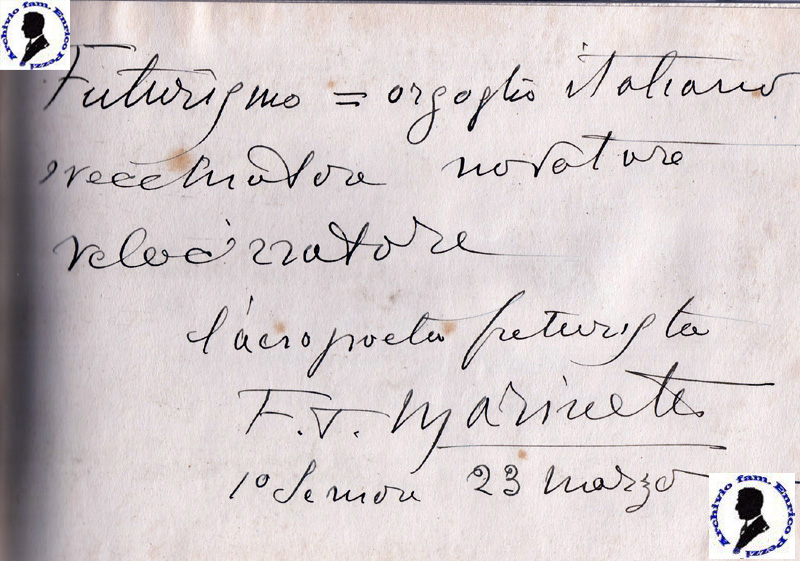 Archivio fam. Enrico Pezzi
Futurismo = orgoglio italiano
svecchiatore novatore
velocizzatore
l'aeropoeta futurista
F. T. Marinetti
1° 23 marzo
Archivio fam. Enrico Pezzi